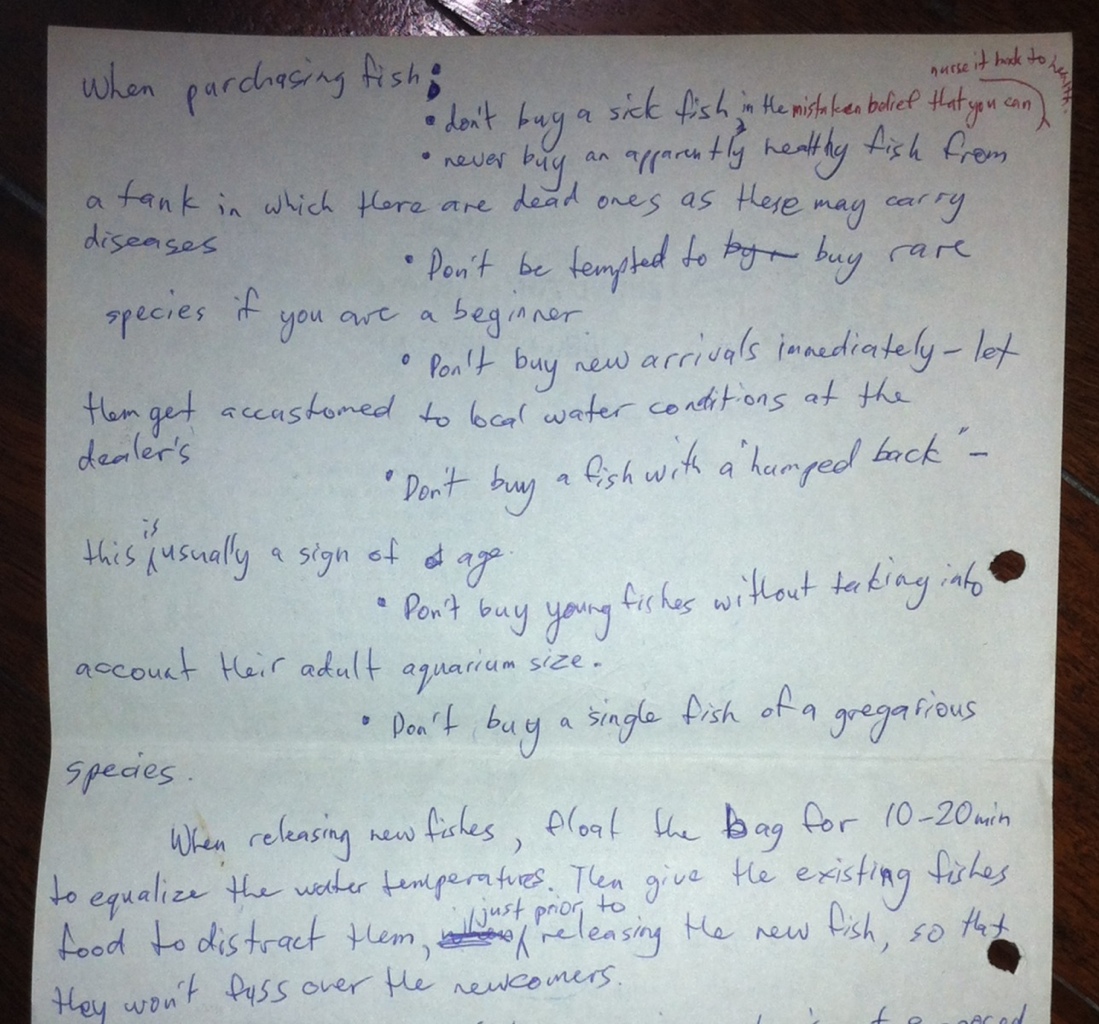 When purchasing fish:
nurse it back to health.
• don't buy a sick fish, in the mistaken belief that you can
• never buy an apparently healthy fish from
a tank in which there are dead ones as these may carry
diseases
• Don't be tempted to by buy rare
species if you are a beginner
• Don't buy new arrivals immediately – let
them get accustomed to local water conditions at the
dealer's
• Don't buy a fish with a "humped back" –
this is usually a sign of age.
• Don't buy young fishes without taking into
account their adult aquarium size.
• Don't buy a single fish of a gregarious
species.
When releasing new fishes, float the bag for 10-20min
to equalize the water temperatures. Then give the existing fishes
food to distract them, just prior to releasing the new fish, so that
they won't fuss over the newcomers.